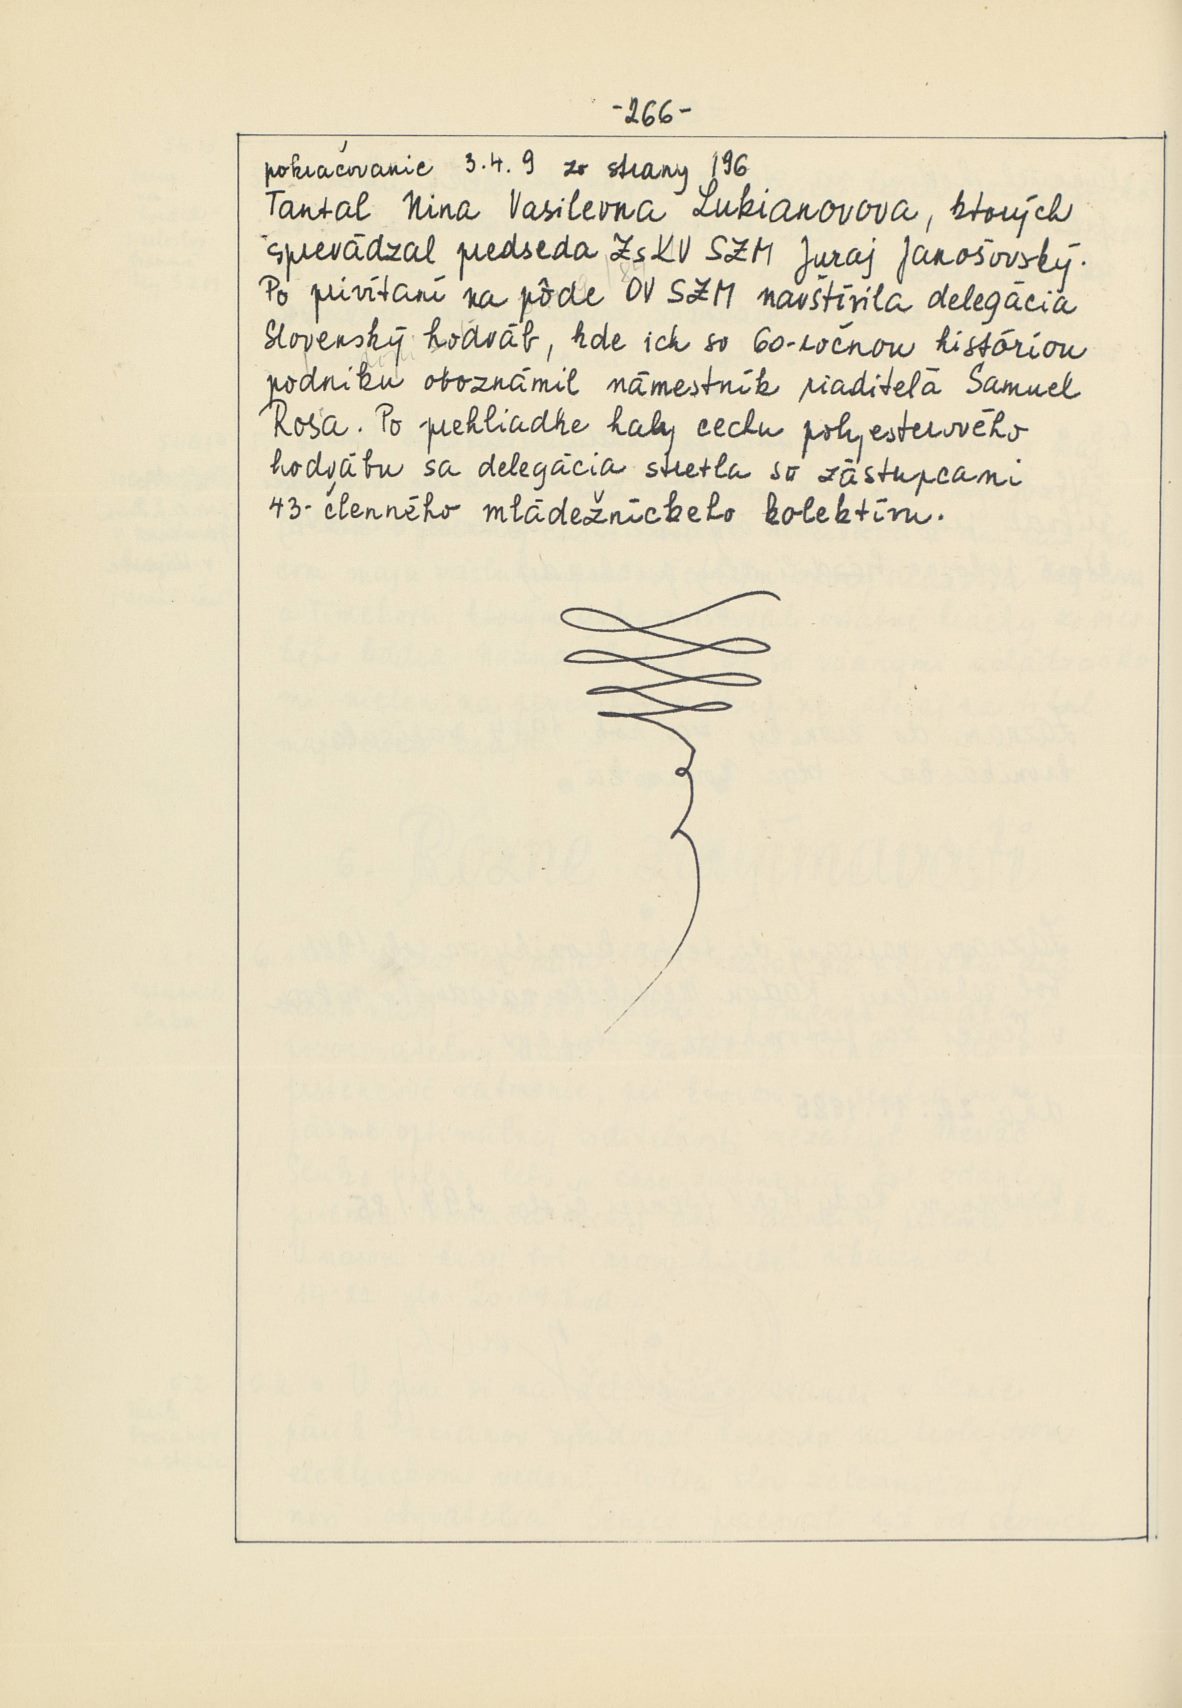 -266-
pokračovanie 3.4.9 zo strany 196
Tantal Nina Vasilevna Lukianovova, ktorých
sprevádzal predseda ZsKV SZM Juraj Janošovský.
Po privítaní na pôde OV SZM navštívila delegácia
Slovenský hodváb, kde ich so 60-ročnou históriou
podniku oboznámil námestník riaditelá Samuel
Rosa. Po prehliadke haly cechu polyesterového
hodvábu sa delegácia stretla so zástupcami
43-členného mládežníckeho kolektívu.